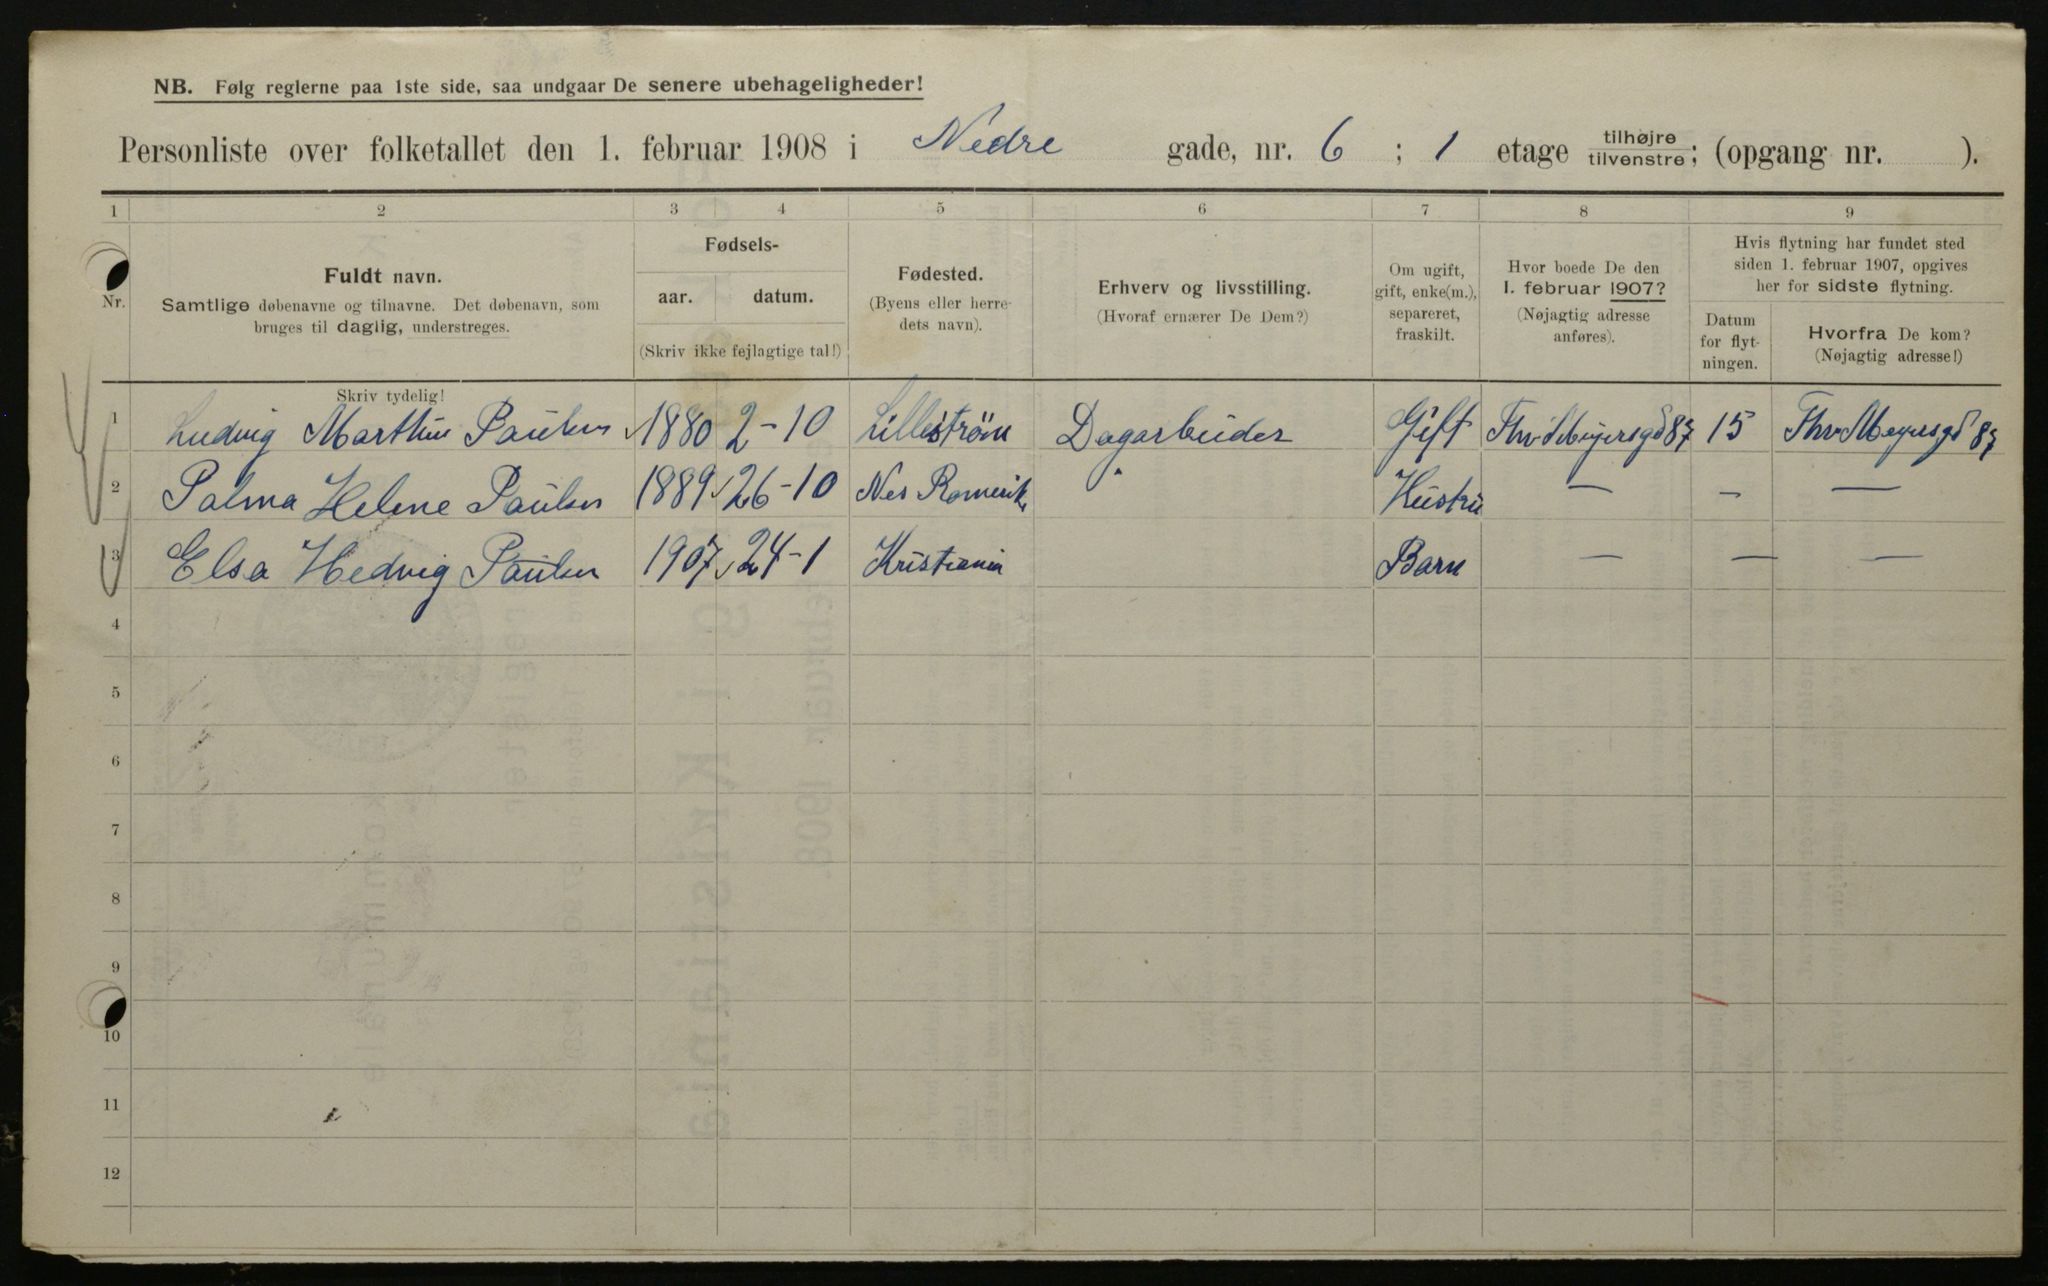 NB. Følg reglerne paa 1ste side, saa undgaar De senere ubehageligheder!
Personliste over folketallet den 1. februar 1908 i Nedre gade, nr. 6 ; 1 etage tilhøjre/tilvenstre; (opgang nr. ).
1 2 3 4 5 6 7 8 9
Nr.
Fuldt navn.
Samtlige døbenavne og tilnavne. Det døbenavn, som
bruges til daglig, understreges.
Fødsels-
aar. datum.
(Skriv ikke fejlagtige tal!)
Fødested.
(Byens eller herre-
dets navn).
Erhverv og livsstilling.
(Hvoraf ernærer De Dem?)
Om ugift,
gift, enke(m.),
separeret,
fraskilt.
Hvor boede De den
1. februar 1907?
(Nøjagtig adresse
anføres).
Hvis flytning har fundet sted
siden 1. februar 1907, opgives
her for sidste flytning.
Datum
for flyt-
ningen.
Hvorfra De kom?
(Nøjagtig adresse!)
Skriv tydelig!
1 Ludvig Marthin Paulsen 1880 2-10 Lilleström Dagarbeider Gift Thv Meyersgd 87 15 Thv Meyersgd 87
2 Palma Helene Paulsen 1889 26-10 Nes Romerik " Hustru — – —
3 Elsa Hedvig Paulsen 1907 24-1 Kristiania Barn — — —
4
5
6
7
8
9
10
11
12